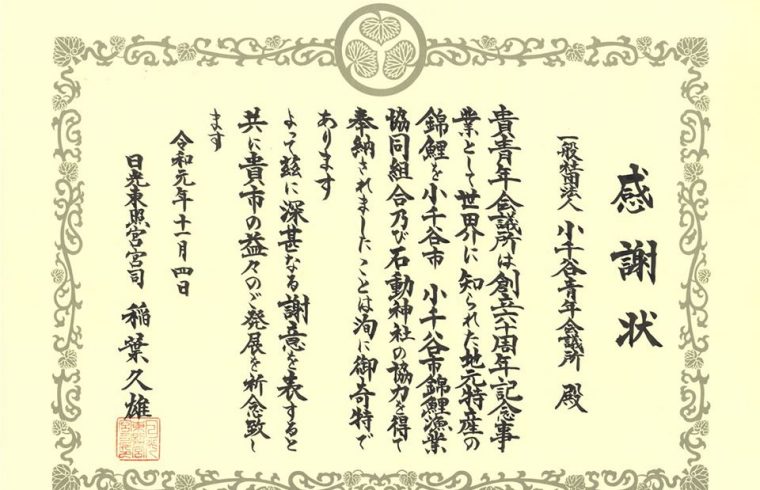 感謝状
一般社団法人 小千谷青年会議所 殿
貴青年会議所は創立六十周年記念事
業として世界に知られた地元特産の
錦鯉を小千谷市 小千谷市錦鯉漁業
協同組合乃び石動神社の協力を得て
奉納されましたことは洵に御奇特で
あります
よって茲に深甚なる謝意を表すると
共に貴市の益々のご発展を祈念致し
ます
令和元年十一月四日
日光東照宮宮司 稲葉久雄